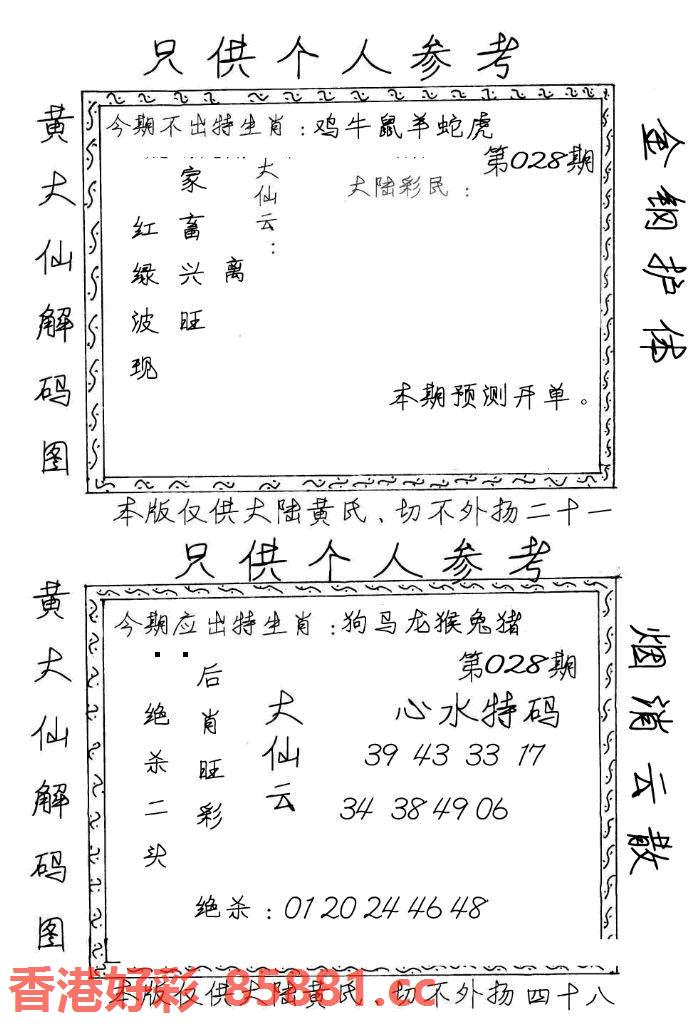 只供个人参考
黄大仙解码图
今期不出特生肖：鸡牛鼠羊蛇虎
第028期
大仙云：
家畜兴旺
红绿波现
离
大陆彩民：
本期预测开单。
金钢护体
本版仅供大陆黄氏、切不外扬二十一
只供个人参考
黄大仙解码图
今期应出特生肖：狗马龙猴兔猪
第028期
大仙云
后肖旺彩
绝杀二头
心水特码
39 43 33 17
34 38 49 06
绝杀：01 20 24 46 48
烟消云散
本版仅供大陆黄氏、切不外扬四十八
香港好彩 85881.cc